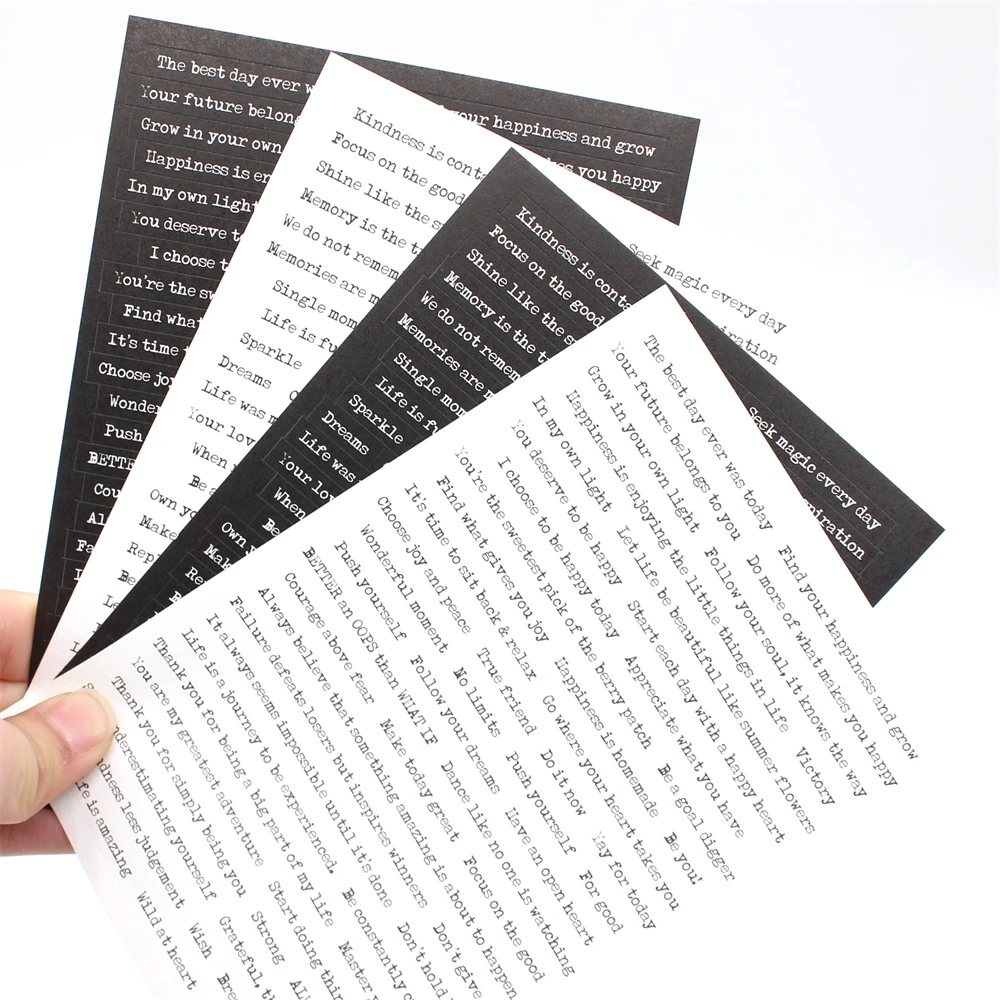 The best day ever
your happiness and grow
Your future
you happy
Grow in your own
Happiness is
In my own light
You deserve
I choose
You're the
Find what
It's time
Choose joy
Push
BETTER
Kindness is
Focus on the good
Shine like the
Memory is the
We do not
Memories are
Single
Life is
Sparkle
Dreams
Life was
Your
When
Seek magic every day
Kindness is
Focus on the good
Shine like the
Memory is the
We do not
Memories are
Single
Life is
Sparkle
Dreams
Life was
Your
When
Seek magic every day
The best day ever was today Find your happiness and grow
Your future belongs to you Do more of what makes you happy
Grow in your own light Follow your soul, it knows the way
Happiness is enjoying the little things in life Victory
In my own light Let life be beautiful like summer flowers
You deserve to be happy Start each day with a happy heart
I choose to be happy today Appreciate what you have
You're the sweetest pick of the berry patch Be a goal digger
Find what gives you joy Happiness is homemade Be you!
It's time to sit back & relax Go where your heart takes you
Choose joy and peace True friend Do it now Yay for today
Wonderful moment No limits Push yourself For good
Push yourself Follow your dreams Have an open heart
BETTER an OOPS than WHAT IF Dance like no one is watching
Courage above fear Make today great Focus on the good
Always believe that something amazing is about to happen
Failure defeats losers but inspires winners Don't give
It always seems impossible until it's done Don't hold
Life is a journey to be experienced. Be constantly
Thank you for being a big part of my life Master
You are my greatest adventure Start doing
Thank you for simply being you Strong
underestimating yourself Grateful,
Kindness less judgement Wish
Life is amazing Wild at heart